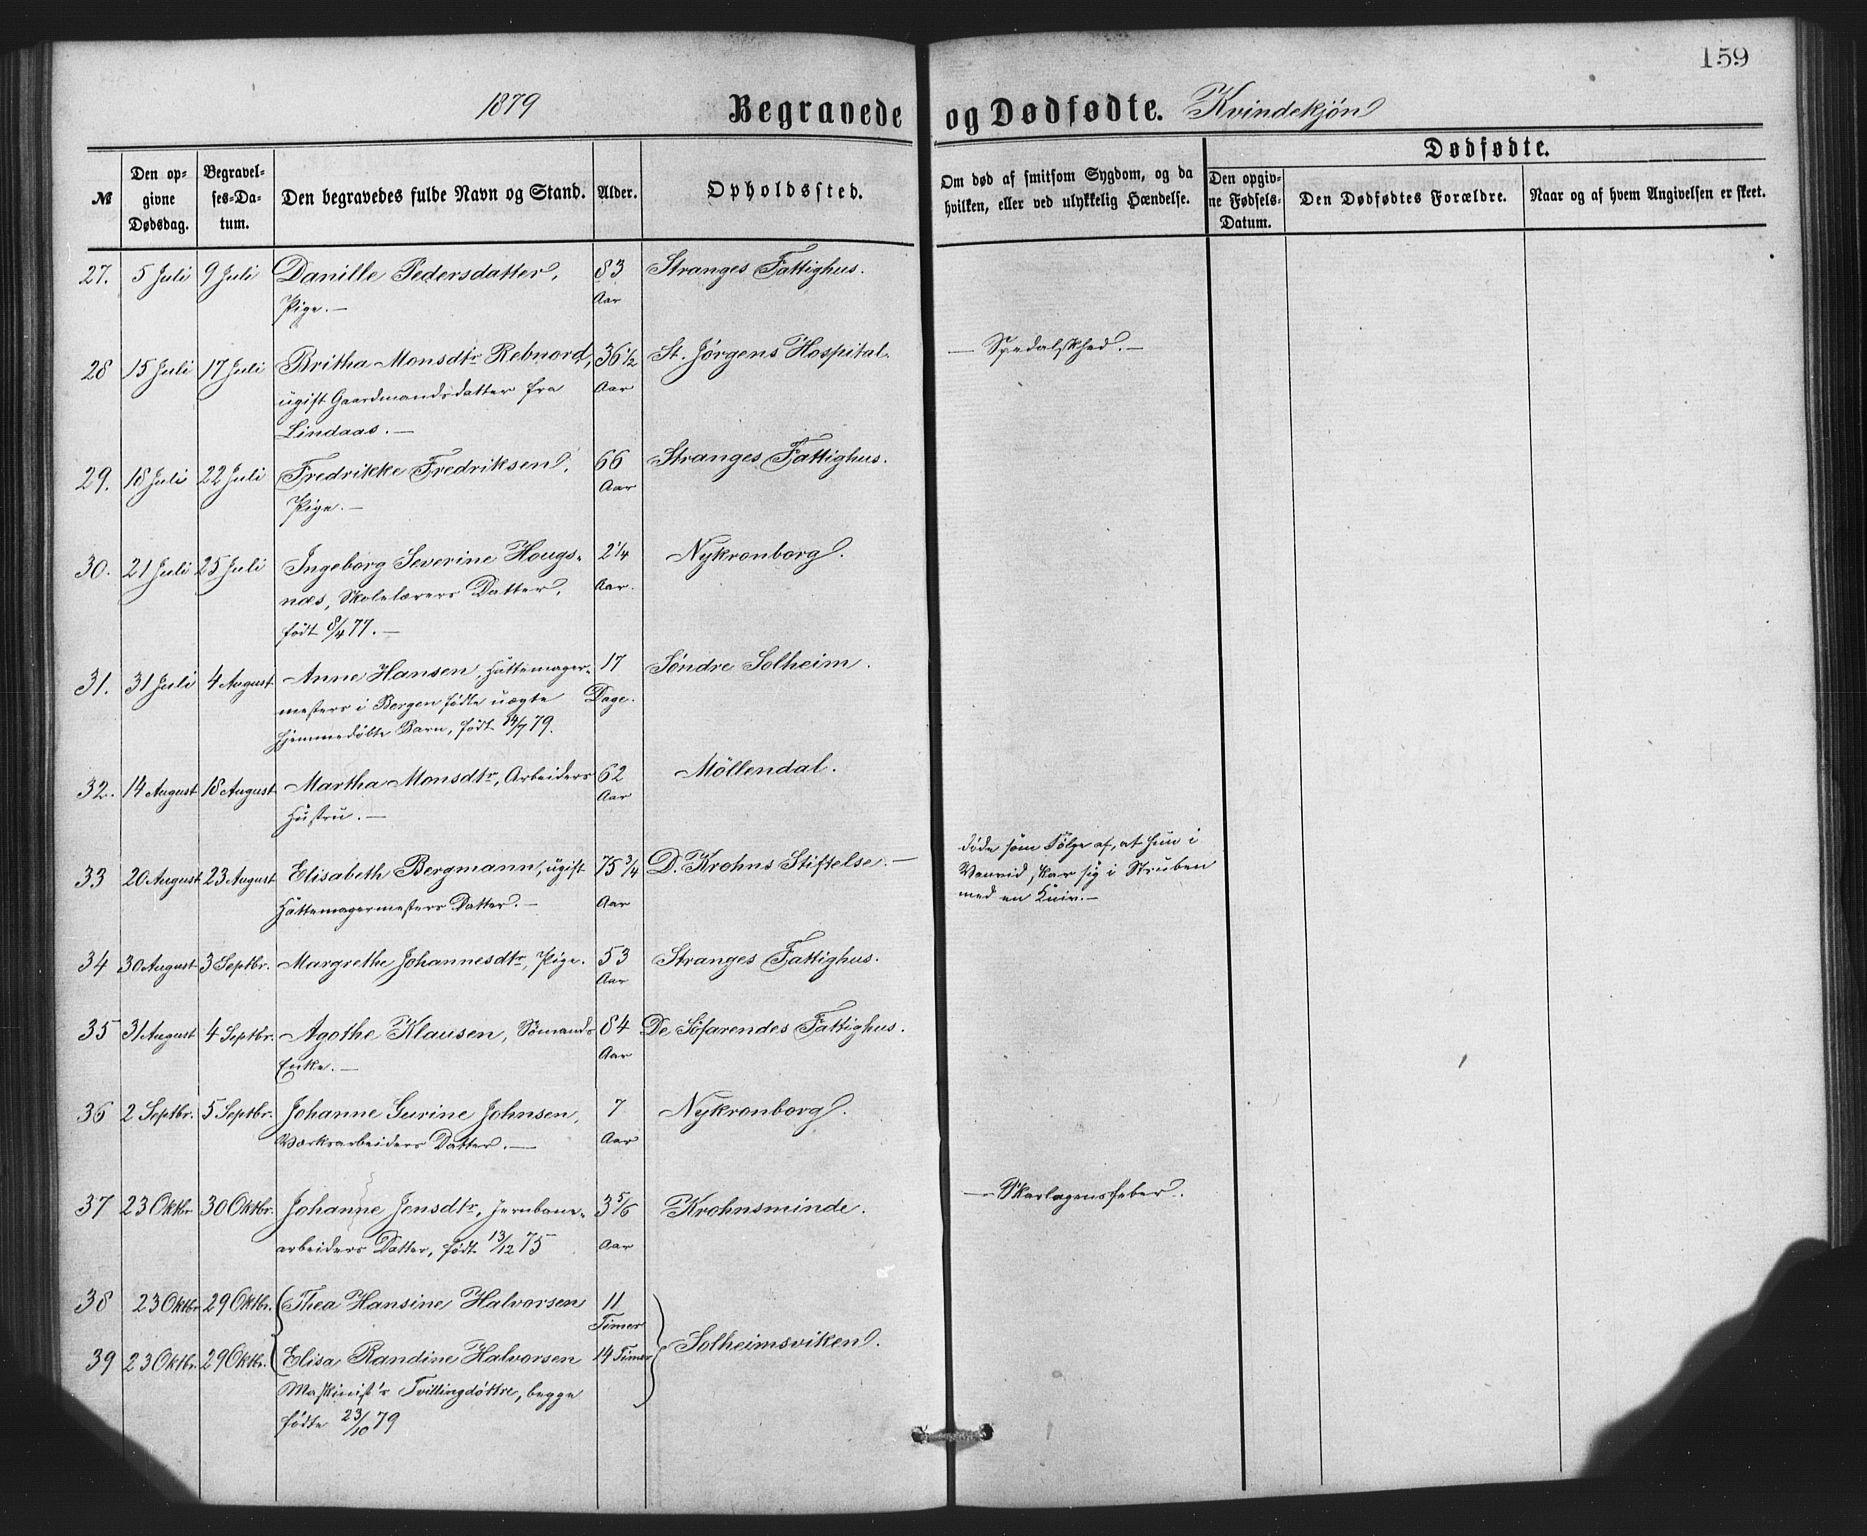 159
1879 Begravede og Dødfødte. Kvindekjøn
№
Den opgivne Dødsdag.
Begravelses-Datum.
Den begravedes fulde Navn og Stand.
Alder.
Opholdssted.
Om død af smitsom Sygdom, og da hvilken, eller ved ulykkelig Hændelse.
Dødfødte.
Den opgivne Fødsels-Datum.
Den Dødfødtes Forældre.
Naar og af hvem Angivelsen er skeet.
27. 5 Juli 9 Juli Danille Pedersdatter, 83 Stranges Fattighus.
Pige. — Aar
28 15 Juli 17 Juli Britha Monsdtr Rebnord, 36 1/2 St. Jørgens Hospital. — Spedalskhed. —
ugift Gaardmandsdatter fra Aar
Lindaas. —
29. 18 Juli 22 Juli Fredrikke Fredriksen, 66 Stranges Fattighus.
Pige. — Aar
30. 21 Juli 25 Juli Ingeborg Severine Hougs- 2 1/4 Nykronborg.
næs, Skolelærers Datter, Aar.
født 8/4 77. —
31. 31 Juli 4 August Anne Hansen, Hattemager- 17 Søndre Solheim.
mesters i Bergen fødte uægte Dage.
hjemmedøbte Barn, født 14/7 79.
32. 14 August 18 August Martha Monsdtr, Arbeiders 62 Möllendal.
Hustru. — Aar
33 20 August 23 August Elisabeth Bergmann, ugift 75 3/4 D. Krohns Stiftelse. — døde som Følge af, at hun i
Hattemagermesters Datter. — Aar Vanvid, skar sig i Struben
med en Kniv. —
34 30 August 3 Septbr. Margrethe Johannesdtr, Pige. 53 Stranges Fattighus.
Aar
35 31 August 4 Septbr. Agothe Klausen, Sömands 84 De Söfarendes Fattighus.
Enke. — Aar
36 2 Septbr. 5 Septbr. Johanne Gurine Johnsen, 7 Nykronborg.
Værksarbeiders Datter. — Aar
37 23 Oktbr 30 Oktbr. Johanne Jonsdtr, Jernbane- 3 5/6 Krohnsminde. — Skarlagensfeber.
arbeiders Datter, født 13/12 75 Aar
38 23 Oktbr 29 Oktbr. Thea Hansine Halvorsen 11
Timer
Solheimsviken.
39 23 Oktbr. 29 Oktbr. Elisa Randine Halvorsen 14 Timer
Maskinist's Tvillingdøttre, begge
fødte 23/10 79